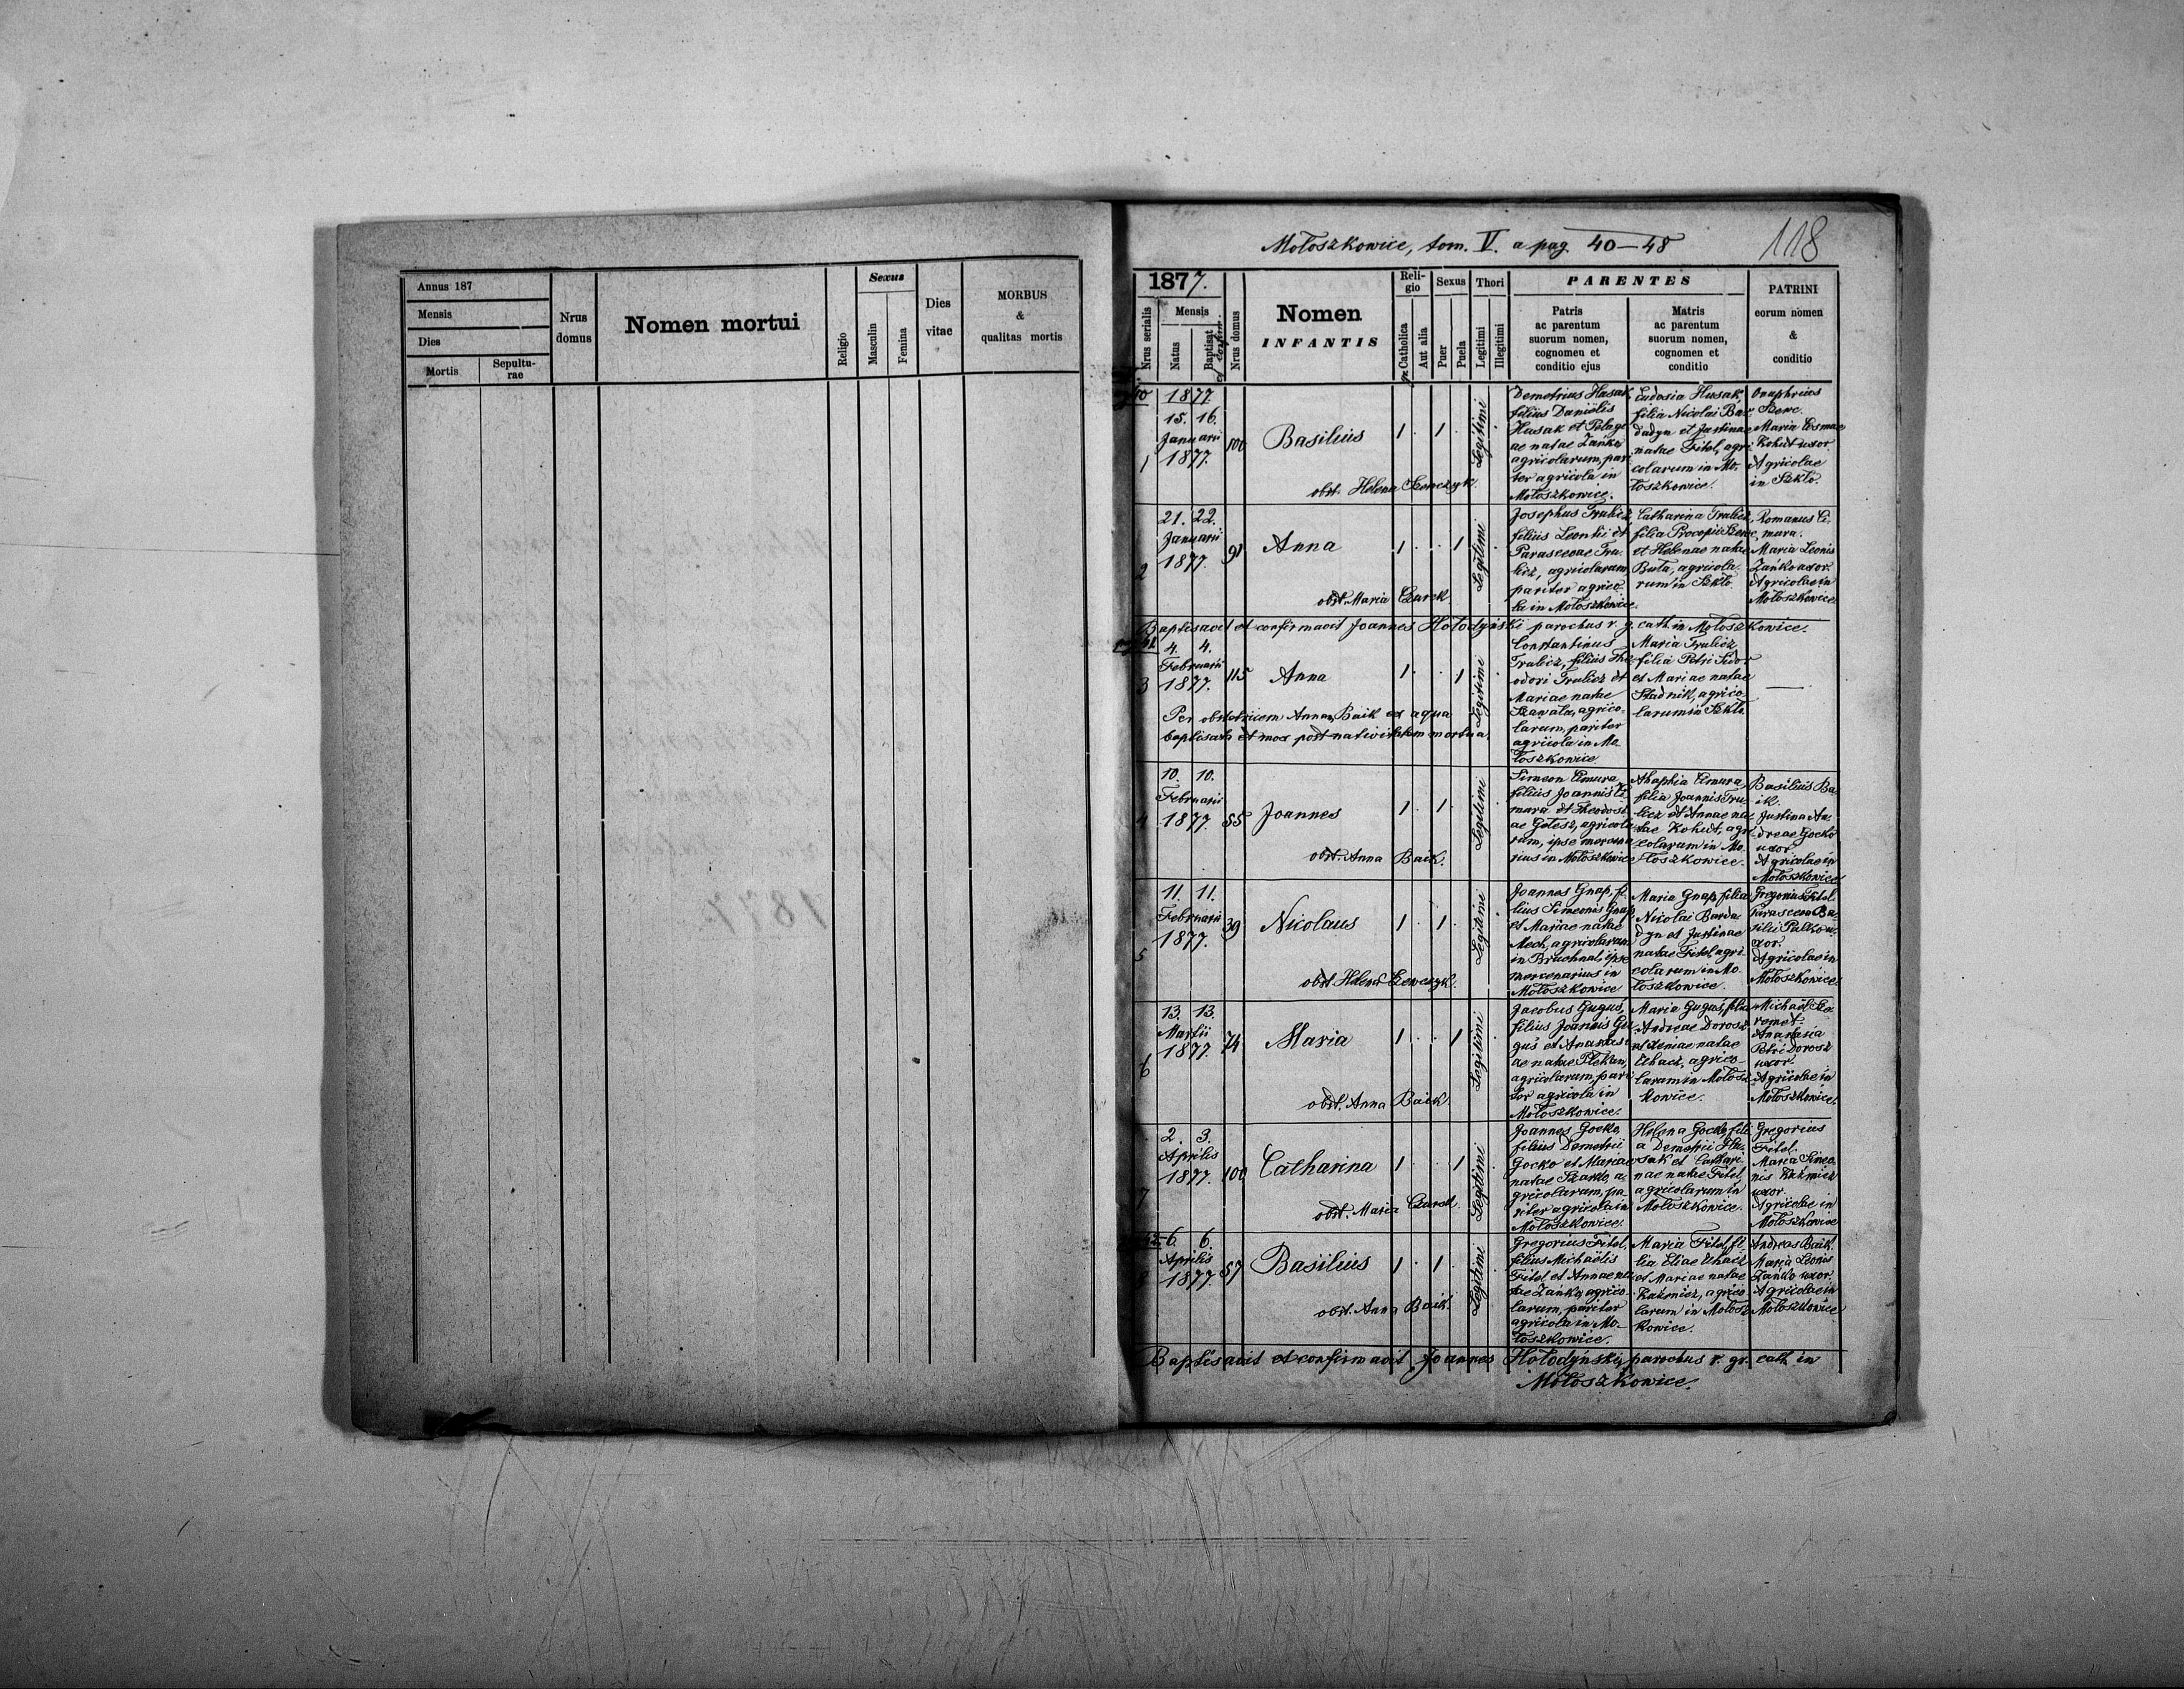 Annus 187
Mensis
Dies
Mortis
Sepultu-
rae
Nrus
domus
Nomen mortui
Religio
Sexus
Masculin
Femina
Dies
vitae
MORBUS
&
qualitas mortis
Mołoszkowice, tom. V. a pag. 40–48
118
1877.
Nrus serialis
Mensis
Natus
Baptisat
et confirm.
Nrus domus
Nomen
INFANTIS
Reli-
gio
Catholica
Aut alia
Sexus
Puer
Puela
Thori
Legitimi
Illegitimi
PARENTES
Patris
ac parentum
suorum nomen,
cognomeu et
conditio ejus
Matris
ac parentum
suorum nomen,
cognomen et
conditio
PATRINI
eorum nomen
&
conditio
1877
15. 16.
Januarii
1877.
1
100
Basilius
1 . 1 .
Legitimi
obst. Helena Szewczyk.
Demetrius Husak,
filius Daniëlis
Husak et Pelagi
ae natae Zańko,
agricolarum, pari
ter agricola in
Mołoszkowice.
Eudosia Husak,
filia Nicolai Bar
dadyn et Justinae
natae Fitel, agri
colarum in Mo-
łoszkowice.
Onuphrius
Szewc.
Maria Cosmae
Kohut uxor
Agricolae
in Szkło.
21. 22.
Januarii
1877.
2
91
Anna
1 . . 1
Legitimi
obst. Maria Czurek.
Josephus Trulicz,
filius Leontii et
Parascevae Tru-
licz, agricolarum,
pariter agrico-
la in Mołoszkowice.
Catharina Trulicz,
filia Procopii Szewc,
et Helenae natae
Buta, agricola-
rum in Szkło.
Romanus Ci-
mura.
Maria Leonis
Zańko uxor.
Agricolae in
Mołoszkowice.
Baptisavit et confirmavit Joannes Hołodyński parochus r. g. cath. in Mołoszkowice.
41
4. 4.
Februarii
1877.
3
115
Anna
1 . . 1
Legitimi
Per obstetricem Annam Baik ex aqua
baptisata et mox post nativitatem mortua.
Constantinus
Trulicz, filius The
odori Trulicz et
Mariae natae
agrico-
larum, pariter
agricola in Mo
łoszkowice
Maria Trulicz
filia Petri Sidor
et Mariae natae
Stadnik, agrico
larum in Szkło.
10. 10.
Februarii
1877.
4
55
Joannes
1 . 1 .
Legitimi
obst. Anna Baik.
Simeon Cimura
filius Joannis Ci
mura et Theodosi
ae Gełesz, agricola
rum, ipse mercena
rius in Mołoszkowice
Ahaphia Cimura,
filia Joannis Tru-
licz et Annae na-
tae Kohut, agri
colarum in Mo-
łoszkowice.
Basilius Ba-
ik.
Justina An-
dreae Gocko
uxor.
Agricolae in
Mołoszkowice
11. 11.
Februarii
1877.
5
39
Nicolaus
1 . 1 .
Legitimi
obst. Helena Szewczyk.
Joannes Gnap, fi-
lius Simeonis Gnap
et Mariae natae
Mech, agricolarum
in Bruchnal, ipse
mercenarius in
Mołoszkowice
Maria Gnap, filia
Nicolai Barda-
dyn et Justinae
natae Fitel, agri-
colarum in Mo-
łoszkowice.
Gregorius Fitel.
Parasceva Ba-
silii u-
xor.
Agricolae in
Mołoszkowice.
13. 13.
Martii
1877.
6
74
Maria
1 . . 1
Legitimi
obst. Anna Baik.
Jacobus Guguś,
filius Joannis Gu-
guś et Anastasi
ae natae
agricolarum, pari
ter agricola in
Mołoszkowice.
Maria Guguś, filia
Andreae Dorosz
et Xeniae natae
Uhacz, agrico-
larum in Mołosz
kowice.
Michaël
Anastasia
Petri Dorosz
uxor.
Agricolae in
Mołoszkowice.
2. 3.
Aprilis
1877.
7
100
Catharina
1 . . 1
Legitimi
obst. Maria Czurek.
Joannes Gocko,
filius Demetrii
Gocko et Mariae
natae Szarko, a-
gricolarum, pa-
riter agricola in
Mołoszkowice.
Helena Gocko, fili-
a Demetrii Hu-
sak et Cathari-
nae natae Fitel,
agricolarum in
Mołoszkowice.
Gregorius
Fitel.
Maria Simeo-
nis Kaźmicz
uxor.
Agricolae in
Mołoszkowice
42
6. 6.
Aprilis
1877.
8
57
Basilius
1 . 1 .
Legitimi
obst. Anna Baik.
Gregorius Fitel,
filius Michaëlis
Fitel et Annae na
tae Zańko, agrico-
larum, pariter
agricola in Mo-
łoszkowice.
Maria Fitel, fi-
lia Eliae Uhacz
et Mariae natae
Kaźmicz, agrico-
larum in Mołosz
kowice.
Andreas Baik.
Maria Leonis
Zańko uxor.
Agricolae in
Mołoszkowice
Baptisavit et confirmavit Joannes Hołodyński, parochus r. gr. cath in
Mołoszkowice.